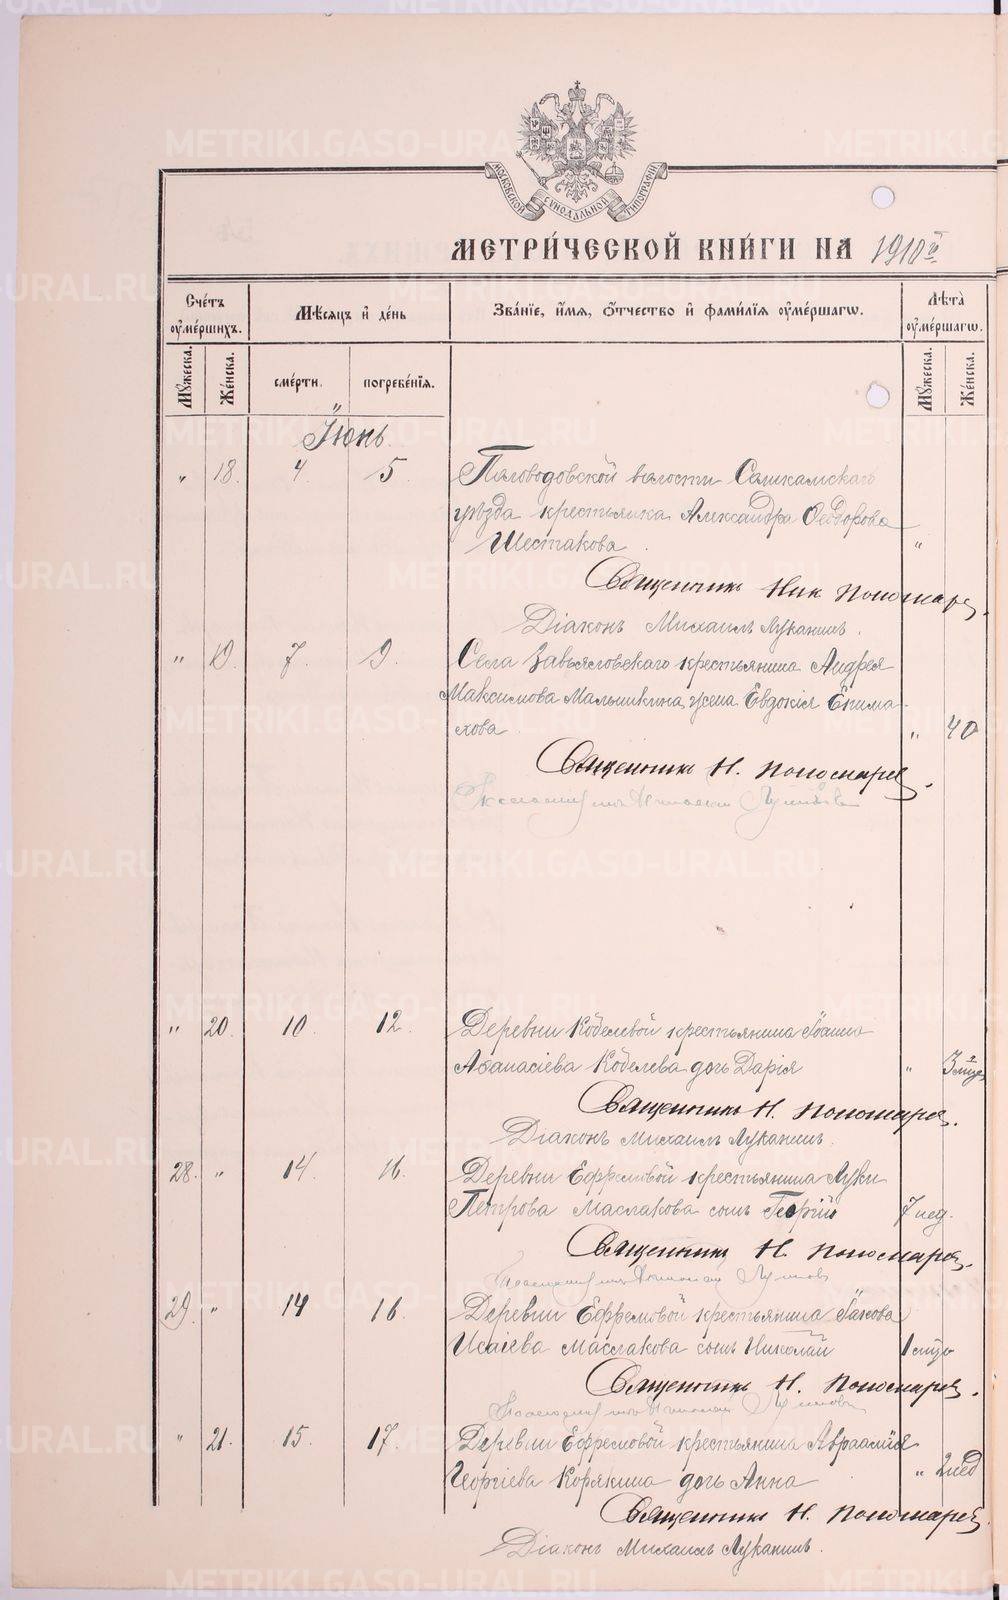 МОСКОВСКОЙ СѴНОДАЛЬНОЙ ТИПОГРАФІИ
МЕТРИ́ЧЕСКОЙ КНИ́ГИ НА 1910 й.
Сче́тъ оу҆ме́ршихъ. Мѣ́сяцъ и҆ де́нь Зва́нїе, и҆́мя, ѻ҆́тчество и҆ фами́лїя оу҆ме́ршагѡ. Лѣта̀ оу҆ме́ршагѡ.
Мꙋ́жеска. Же́нска. сме́рти. погребе́нїя. Мꙋ́жеска. Же́нска.
Іюнь.
" 18. 4 5 Пыловодовской волости Соликамскаго
уѣзда крестьянка Александра Ѳеодорова
Шестакова. "
Священникъ Ник Пономарев.
Діаконъ Михаилъ Луканинъ.
" 19. 7. 9. Села Завьяловскаго крестьянина Андрея
Максимова Мальшикина жена Евдокія Епима-
хова. " 40
Священникъ Н. Пономарев.
" 20. 10. 12. Деревни Кобелевой крестьянина Іоанна
Аѳанасіева Кобелева дочь Дарія " 3 мѣс
Священникъ Н. Пономарев.
Діаконъ Михаилъ Луканинъ.
28. " 14. 16. Деревни Ефремовой крестьянина Луки
Петрова Маслакова сынъ Георгій 7 нед.
Священникъ Н. Пономарев.
29. " 14 16. Деревни Ефремовой крестьянина Іакова
Исаіева Маслакова сынъ Николай 1 мѣс
Священникъ Н. Пономарев.
" 21. 15. 17. Деревни Ефремовой крестьянина Авраамія
Георгіева Корякина дочь Анна " 2 нед
Священникъ Н. Пономарев.
Діаконъ Михаилъ Луканинъ.
METRIKI.GASO-URAL.RU